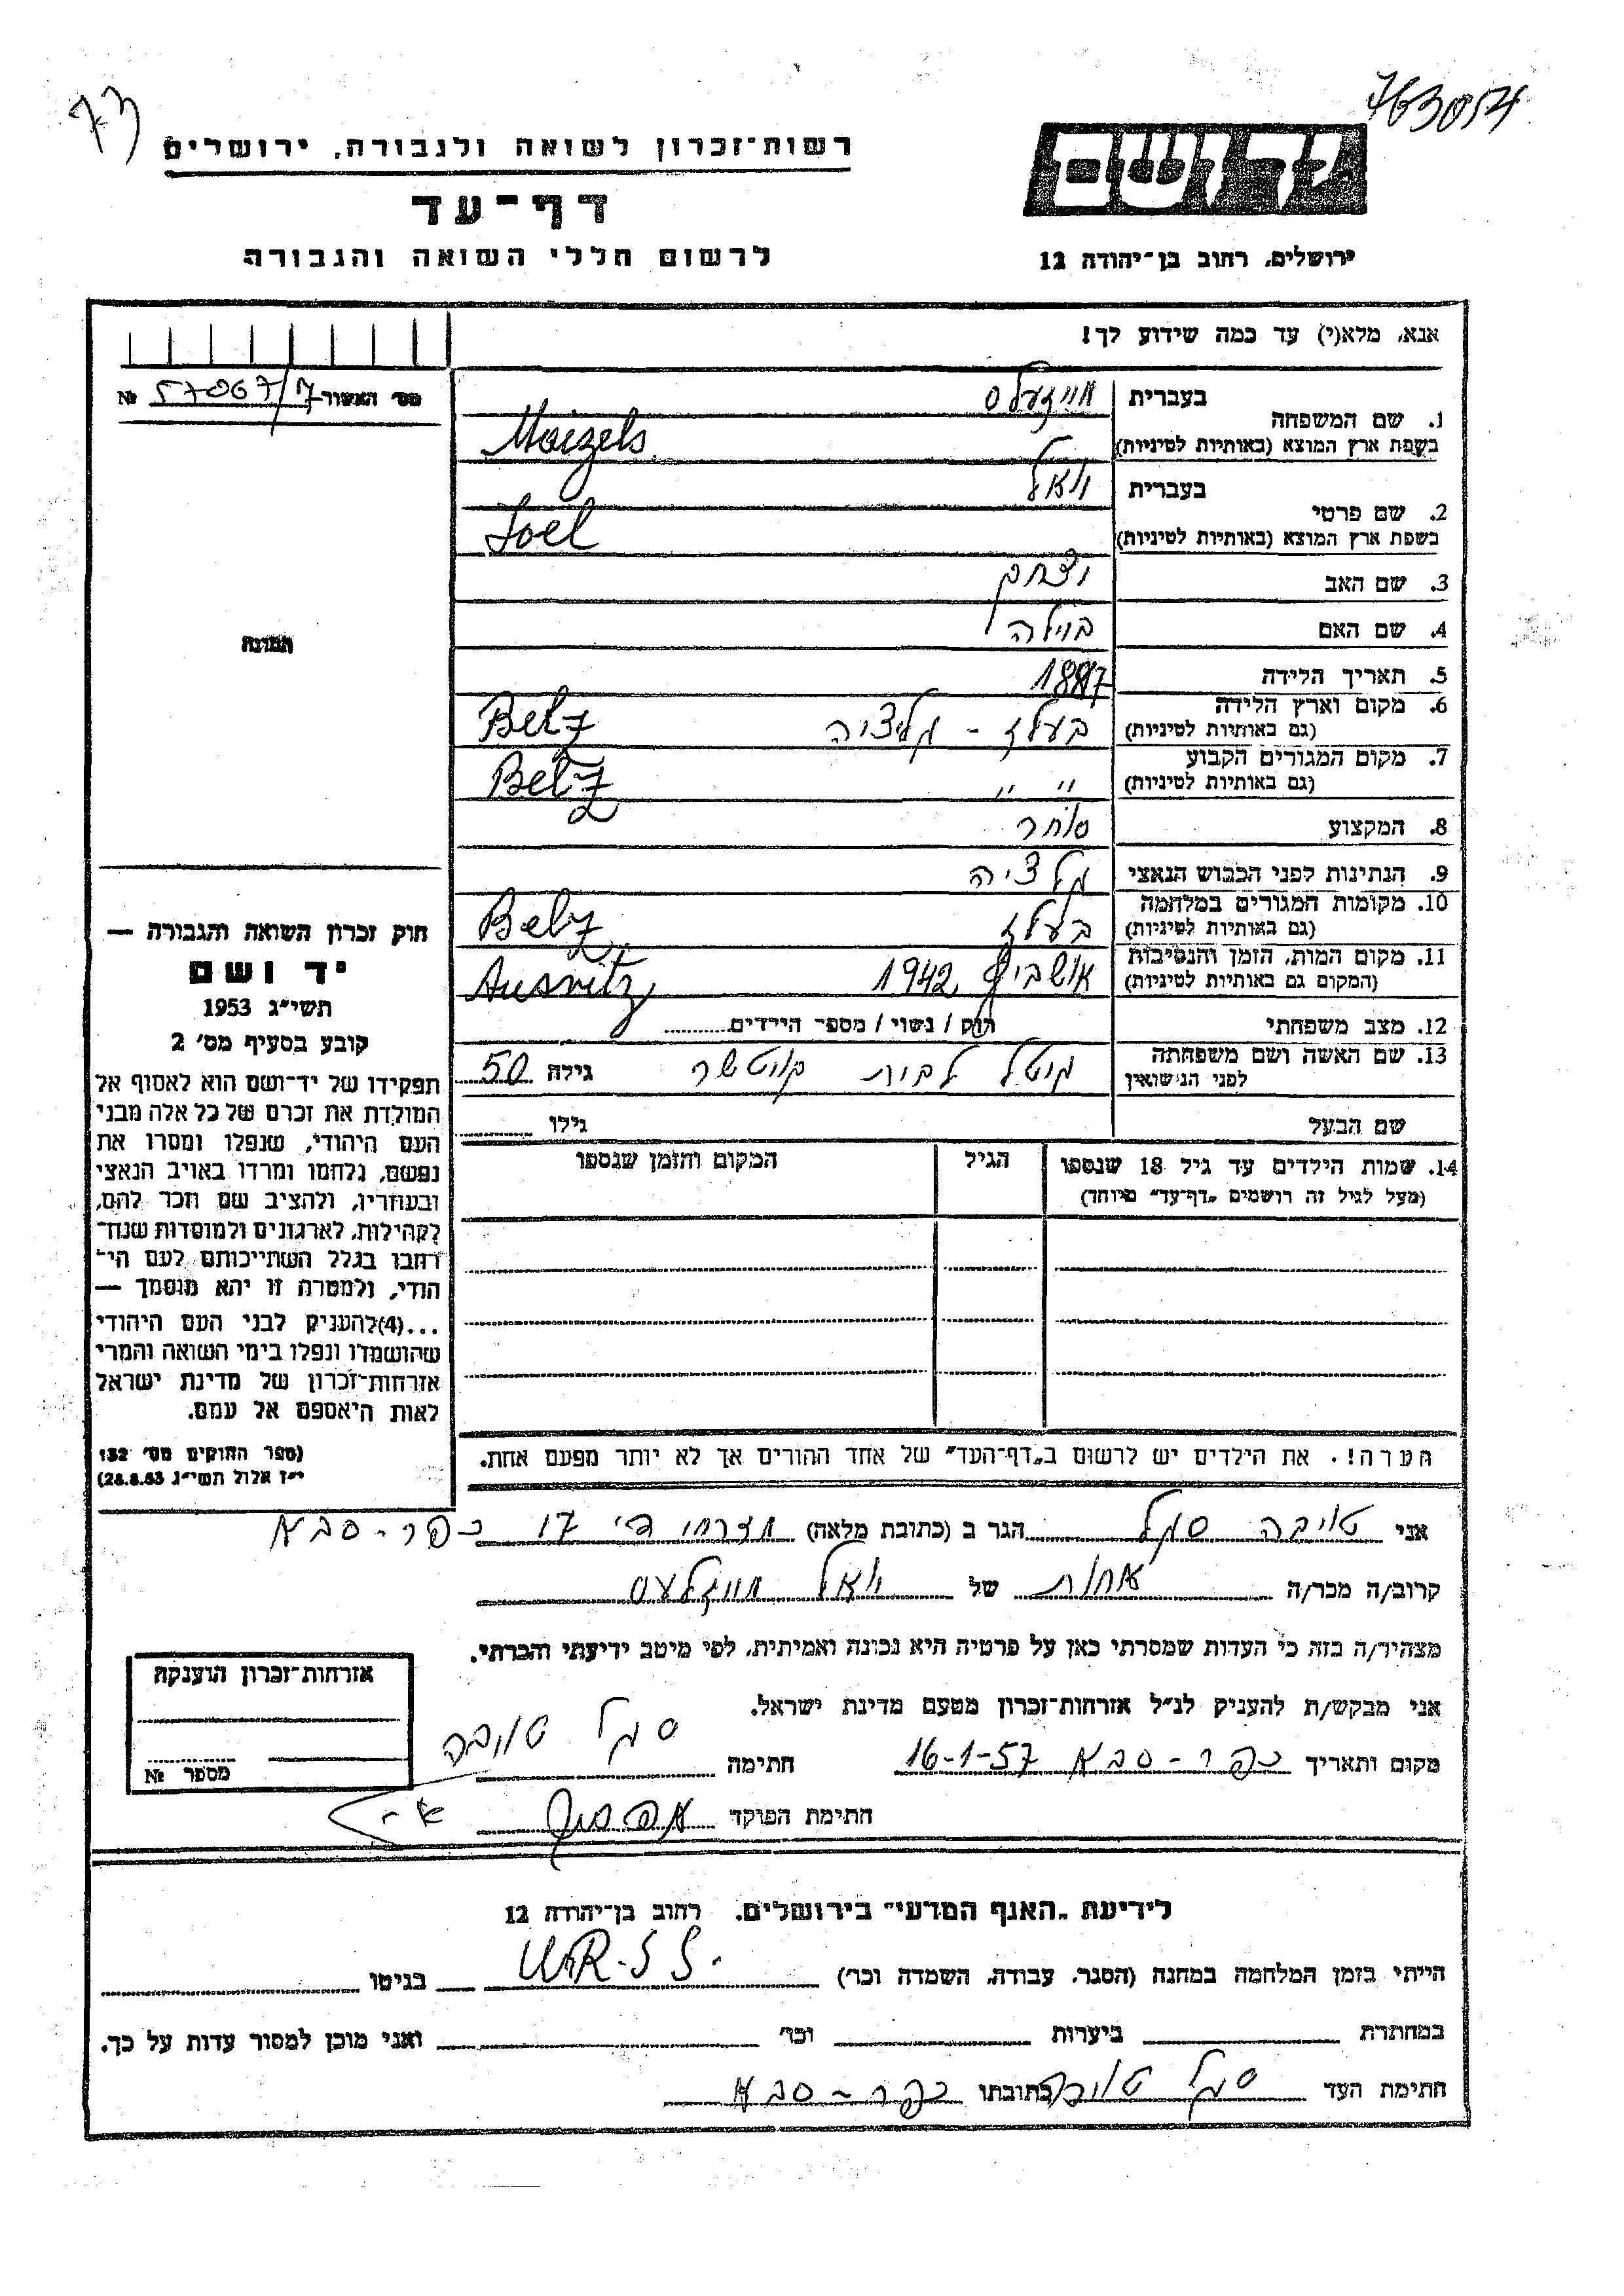 763054
73
רשות־זכרון לשואה ולגבורה, ירושלים
דף־עד
לרשום חללי השואה והגבורה
ידושם
ירושלים, רחוב בן־יהודה 12
אנא, מלא(י) עד כמה שידוע לך!
מס׳ האשור 57067/7 №
1. שם המשפחה בעברית מייזעלס
בשפת ארץ המוצא (באותיות לטיניות) Maizels
2. שם פרטי בעברית יואל
בשפת ארץ המוצא (באותיות לטיניות) Joel
3. שם האב יצחק
4. שם האם ביילה
5. תאריך הלידה 1887
6. מקום וארץ הלידה (גם באותיות לטיניות) בעלז - גליציה Belz
7. מקום המגורים הקבוע (גם באותיות לטיניות) " " Belz
8. המקצוע סוחר
9. הנתינות לפני הכבוש הנאצי גלציה
10. מקומות המגורים במלחמה (גם באותיות לטיניות) בעלז Belz
11. מקום המות, הזמן והנסיבות (המקום גם באותיות לטיניות) אושביץ 1942 Ausvitz
12. מצב משפחתי רוק / נשוי / מספר הילדים
13. שם האשה ושם משפחתה לפני הנישואין גיטל לבית גילה 50
שם הבעל גילו
14. שמות הילדים עד גיל 18 שנספו הגיל המקום והזמן שנספו
(מעל לגיל זה רושמים „דף־עד״ מיוחד)
הערה!. את הילדים יש לרשום ב„דף־העד״ של אחד ההורים אך לא יותר מפעם אחת.
תמונה
חוק זכרון השואה והגבורה —
יד ושם
תשי״ג 1953
קובע בסעיף מס׳ 2
תפקידו של יד־ושם הוא לאסוף אל
המולדת את זכרם של כל אלה מבני
העם היהודי, שנפלו ומסרו את
נפשם, נלחמו ומרדו באויב הנאצי
ובעוזריו, ולהציב שם וזכר להם,
לקהילות, לארגונים ולמוסדות שנח־
רחבו בגלל השתייכותם לעם הי־
הודי, ולמטרה זו יהא מוסמך —
...(4)להעניק לבני העם היהודי
שהושמדו ונפלו בימי השואה והמרי
אזרחות־זכרון של מדינת ישראל
לאות היאספם אל עמם.
(ספר החוקים מס׳ 132
י״ז אלול תשי״ג 28.8.53)
אני טויבה סגל הגר ב (כתובת מלאה) מזרחי ב׳ 17 כפר-סבא
קרוב/ה מכר/ה אחות של יואל מייזלעס
מצהיר/ה בזה כי העדות שמסרתי כאן על פרטיה היא נכונה ואמיתית, לפי מיטב ידיעתי והכרתי.
אני מבקש/ת להעניק לנ״ל אזרחות־זכרון מטעם מדינת ישראל.
מקום ותאריך כפר-סבא 16-1-57 חתימה סגל טויבה
חתימת הפוקד
אזרחות־זכרון הוענקה
מספר №
לידיעת „האגף המדעי״ בירושלים. רחוב בן־יהודה 12
הייתי בזמן המלחמה במחנה (הסגר, עבודה, השמדה וכו׳) U.R.S.S. בגיטו
במחתרת ביערות וכו׳ ואני מוכן למסור עדות על כך.
חתימת העד סגל טויבה כתובתו כפר-סבא